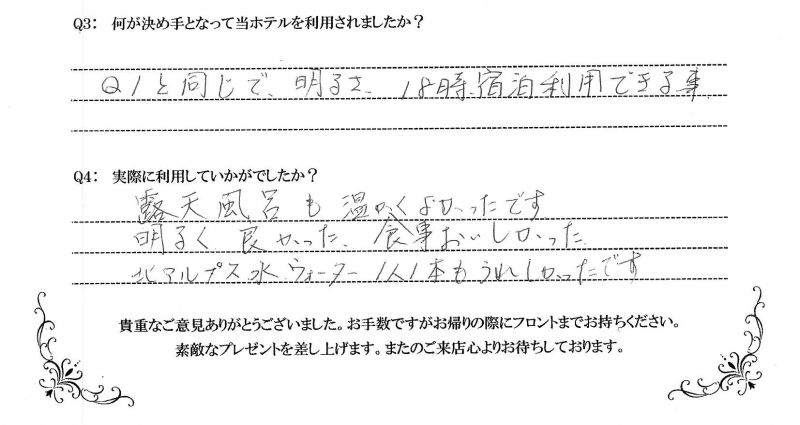 Q3: 何が決め手となって当ホテルを利用されましたか？
Q1と同じで、明るさ、18時、宿泊利用できる事
Q4: 実際に利用していかがでしたか？
露天風呂も温かくよかったです
明るく良かった、食事おいしかった
北アルプス水、ウォーター1人1本もうれしかったです
貴重なご意見ありがとうございました。お手数ですがお帰りの際にフロントまでお持ちください。
素敵なプレゼントを差し上げます。またのご来店心よりお待ちしております。